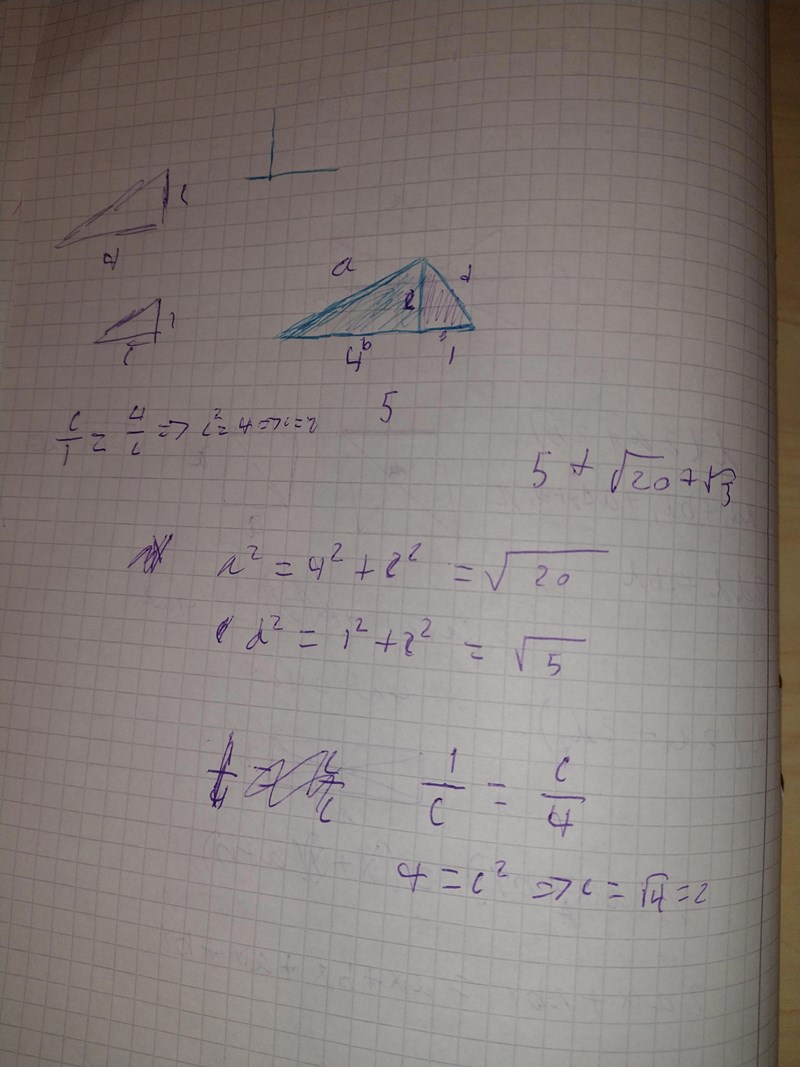 c
4
1
c
a
d
c
4 b
1
5
c/1 = 4/c => c² = 4 => c = 2
5 + √20 + √3
a² = 4² + 2² = √20
d² = 1² + 2² = √5
1/c = c/4
4 = c² => c = √4 = 2